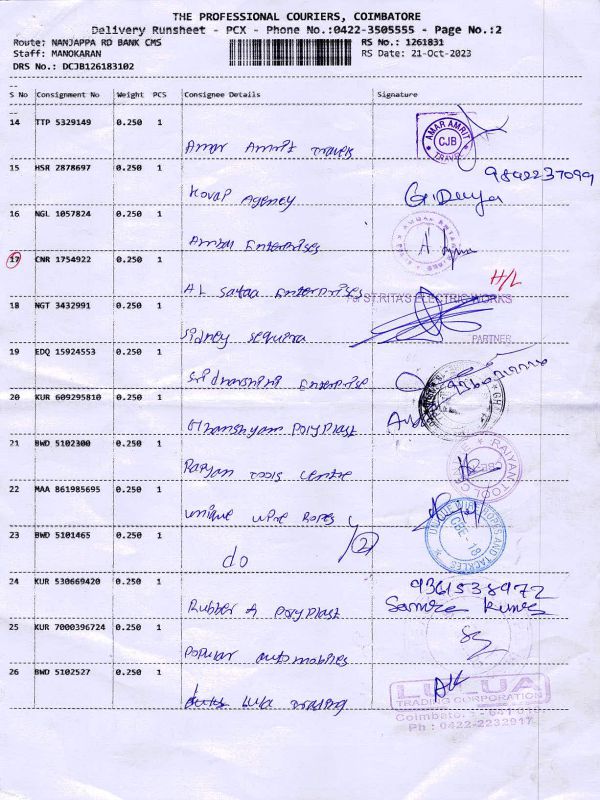 THE PROFESSIONAL COURIERS, COIMBATORE
Delivery Runsheet - PCX - Phone No.:0422-3505555 - Page No.:2
Route: NANJAPPA RD BANK CMS RS No.: 1261831
Staff: MANOKARAN RS Date: 21-Oct-2023
DRS No.: DCJB126183102
S No Consignment No Weight PCS Consignee Details Signature
14 TTP 5329149 0.250 1
Amar Amrit Travels
AMAR AMRIT CJB TRAVEL
15 HSR 2878697 0.250 1
9842237099
Kovap Agency
16 NGL 1057824 0.250 1
Ambal Enterprises
17 CNR 1754922 0.250 1
AL Safaa Enterprises H/L
ST.RITA'S ELECTRIC WORKS
18 NGT 3432991 0.250 1
Sidney Sequira
PARTNER
19 EDQ 15924553 0.250 1
Enterprise
20 KUR 609295810 0.250 1
Ghanshyam Polyplast
21 BWD 5102300 0.250 1
Raiyan Tools Centre
RAIYAN TOOL
22 MAA 861985695 0.250 1
Unique Wire Ropes
23 BWD 5101465 0.250 1
do (2)
UNIQUE WIRE ROPES AND TACKLES CBE - 18
24 KUR 530669420 0.250 1
9361538972
Rubber A Polyplast
25 KUR 7000396724 0.250 1
Popular Automobiles
26 BWD 5102527 0.250 1
Lulua Trading
LULUA
TRADING CORPORATION
Ph : 0422-2232917